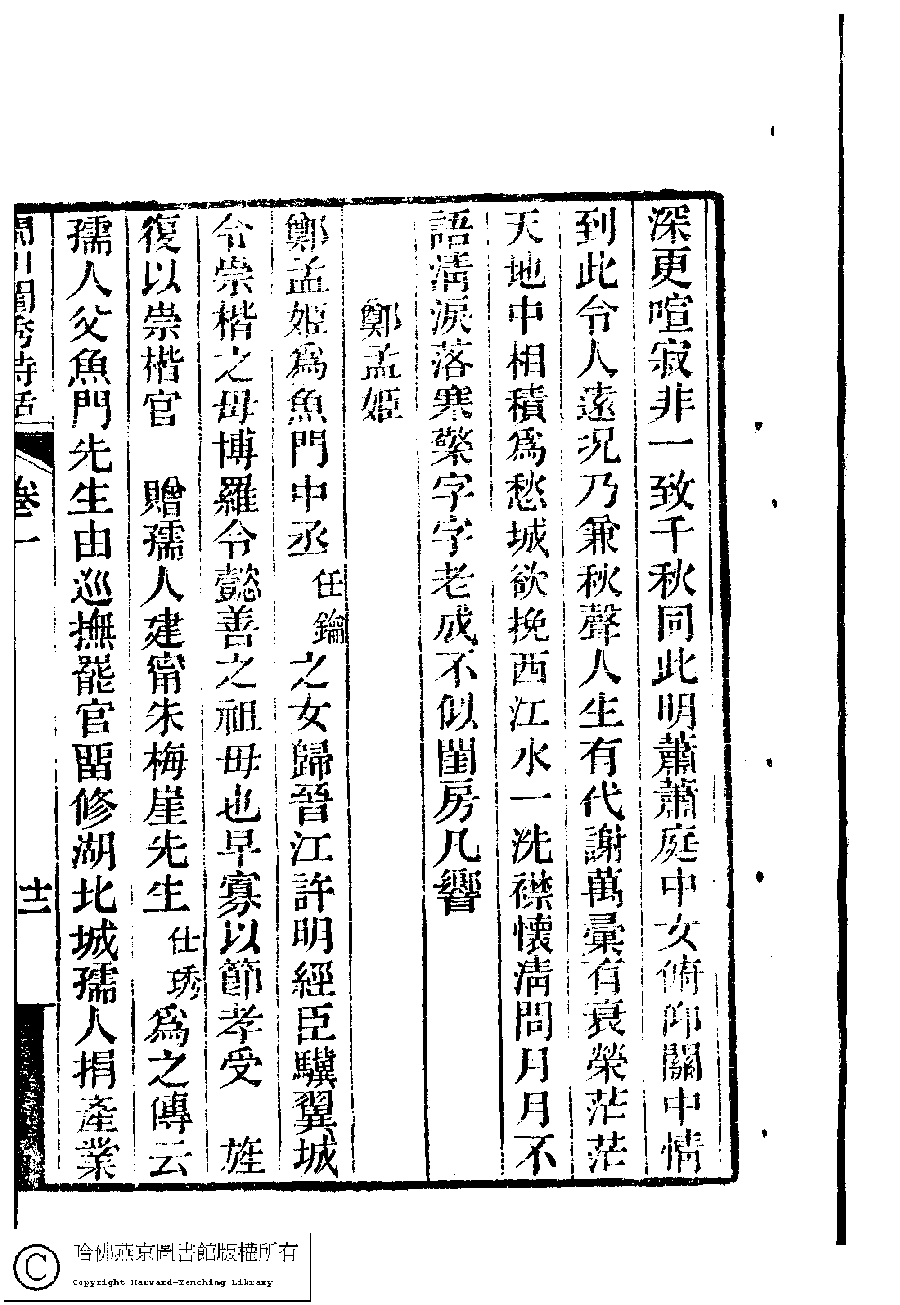 深更喧寂非一致千秋同此明蕭蕭庭中女俯仰關中情
到此令人遠況乃兼秋聲人生有代謝萬彙有衰榮茫茫
天地中相積爲愁城欲挽西江水一洗襟懷淸問月月不
語淸淚落寒檠字字老成不似閨房凡響
鄭孟姬
鄭孟姬爲魚門中丞任鑰之女歸晉江許明經臣驥翼城
令崇楷之母博羅令懿善之祖母也早寡以節孝受 旌
復以崇楷官 贈孺人建甯朱梅崖先生仕琇爲之傳云
孺人父魚門先生由巡撫罷官畱修湖北城孺人捐產業
閨秀詩話
卷一
十二
哈佛燕京圖書館版權所有
Copyright Harvard-Yenching Library